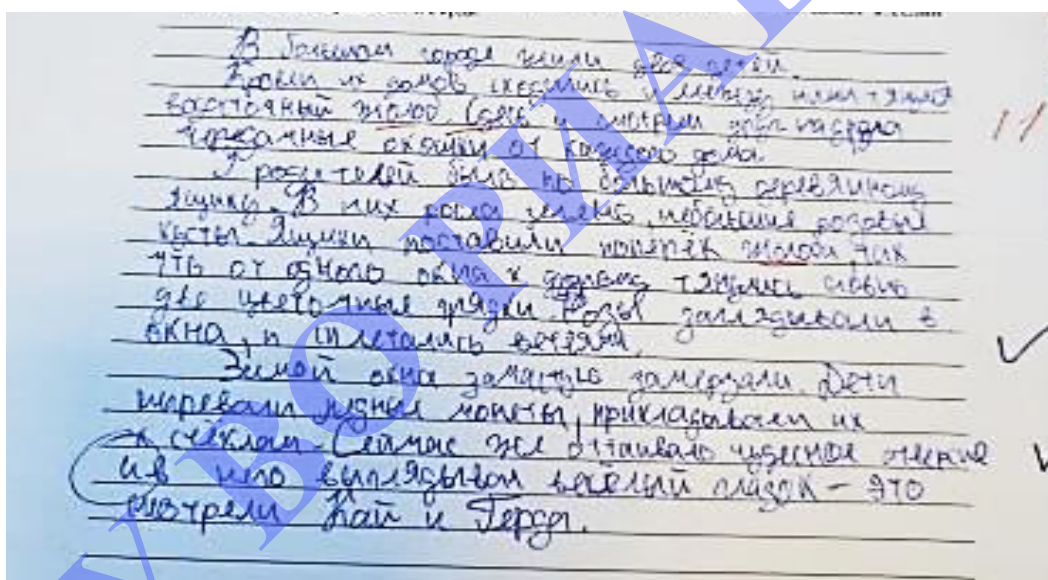 В большом городе жили двое детей.
Кровли их домов сходились и между ними тянулся
восточный жолоб. Сдесь и смотрели друг на друга
чердачные окошки от каждого дома.
У родителей было по большому деревянному
ящику. В них росла зелень, небольшие розовые
кусты. Ящики поставили поперёк жолоба, так
что от одного окна к другому тянулись словно
две цветочные грядки. Розы заглядывали в
окна, и сплетались ветвями.
Зимой окна зачастую замерзали. Дети
нагревали медные монеты, прикладывали их
к стёклам. Сейчас же оттаивало чудесное отверстие
и в него выглядывал весёлый глазок – это
смотрели Кай и Герда.
11
У ВО РИА